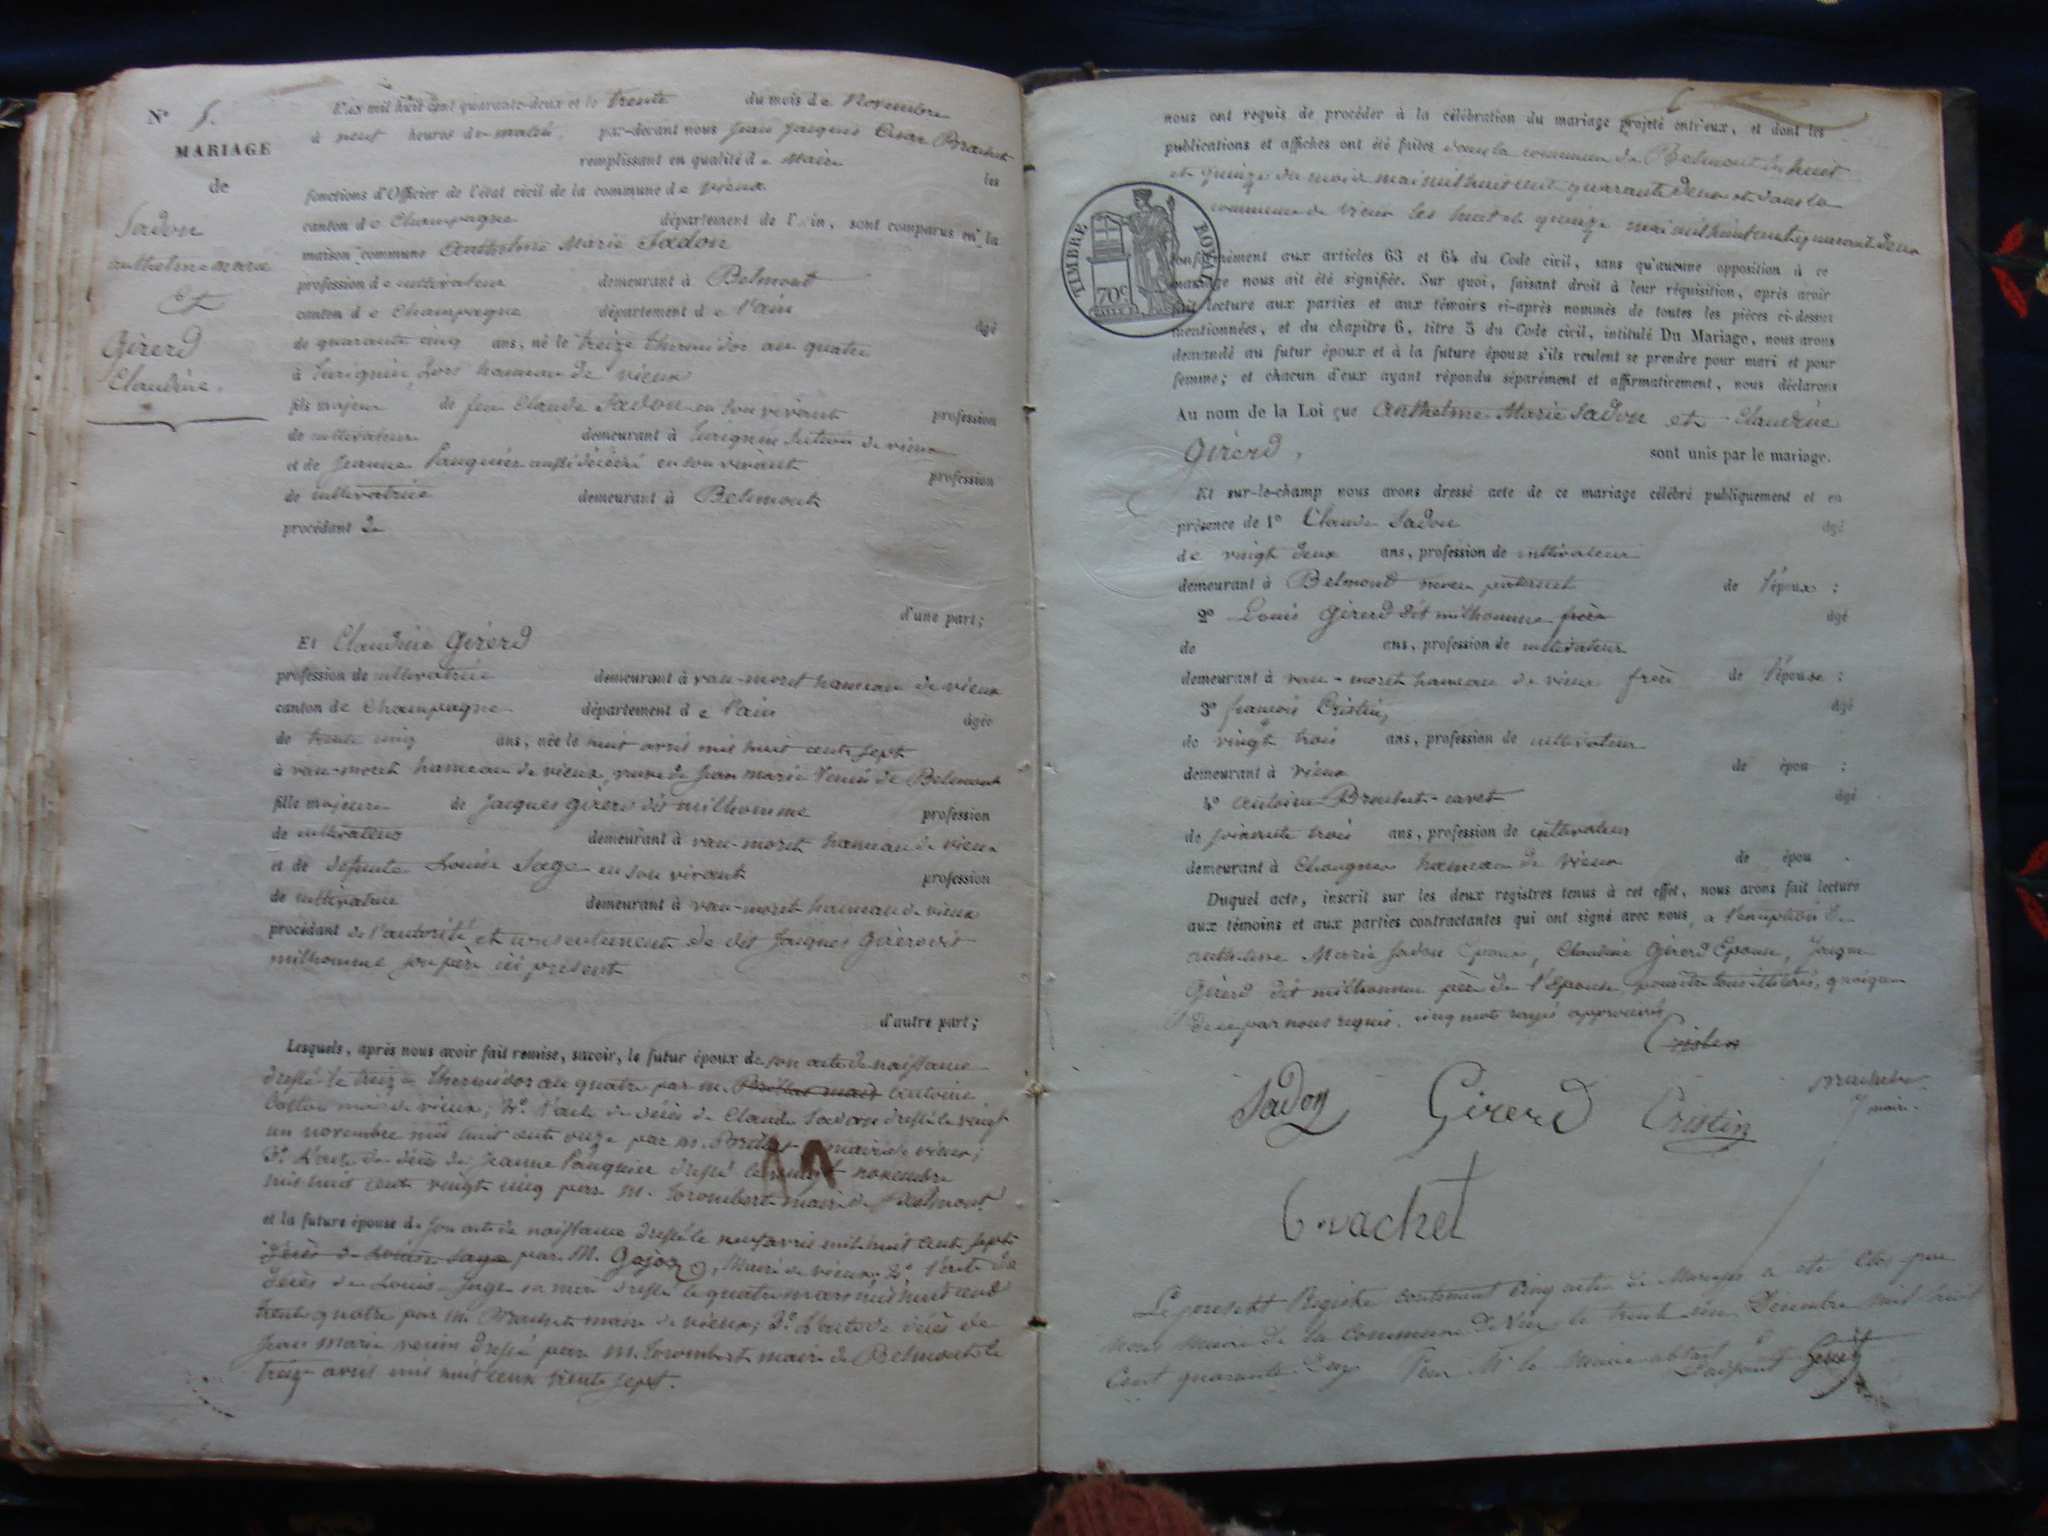 N° 5.
MARIAGE
de
Sadon
anthelme marie
Et
Girerd
Claudine.
L'an mil huit cent quarante-deux et le trente du mois de Novembre
à neuf heures du matin, par-devant nous Jean Jacques César Brachet
remplissant en qualité de Maire les
fonctions d'Officier de l'état civil de la commune de vieux
canton de Champagne département de l'Ain, sont comparus en la
maison commune Anthelme Marie Sadon
profession de cultivateur demeurant à Belmont
canton de Champagne département de l'ain âgé
de quarante cinq ans, né le treize thermidor an quatre
à hameau de vieux
fils majeur de feu Claude Sadon en son vivant profession
de cultivateur demeurant à de vieux
et de Jeanne Pauquier aussi décédée en son vivant profession
de cultivatrice demeurant à Belmont
procédant de
d'une part;
Et Claudine Girerd
profession de cultivatrice demeurant à vau-moret hameau de vieux
canton de Champagne département de l'ain âgée
de trente cinq ans, née le huit avril mil huit cent sept
à vau-moret hameau de vieux, veuve de Jean Marie Venin de Belmont
fille majeure de Jacques Girerd dit milhomme profession
de cultivateur demeurant à vau-moret hameau de vieux
et de défunte Louise Sage en son vivant profession
de cultivatrice demeurant à vau-moret hameau de vieux
procédant de l'autorité et consentement de dit Jacques Girerd dit
milhomme son père ici présent
d'autre part;
Lesquels, après nous avoir fait remise, savoir, le futur époux de son acte de naissance
dressé le treize thermidor an quatre par m. antoine
maire de vieux; 2° l'acte de décès de Claude Sadon dressé le vingt
un novembre mil huit cent onze par m. maire de vieux;
3° L'acte de décès de Jeanne Pauquier dressé le vingt novembre
mil huit cent vingt cinq par m. trombert maire de Belmont
et la future épouse de son acte de naissance dressé le neuf avril mil huit cent sept
décès de Louise Sage par M. Gojoz, Maire de vieux; 2° l'acte de
décès de Louise Sage sa mère dressé le quatre mars mil huit cent
trente quatre par m. Brachet maire de vieux; 3° L'acte de décès de
Jean Marie venin dressé par m. trombert maire de Belmont le
treize avril mil huit cent trente sept.
nous ont requis de procéder à la célébration du mariage projeté entr'eux, et dont les
publications et affiches ont été faites dans la commune de Belmont les huit
et quinze du mois mai mil huit cent quarante deux et dans la
commune de vieux les huit et quinze mai mil huit cent quarante deux
TIMBRE ROYAL
70c
conformément aux articles 63 et 64 du Code civil, sans qu'aucune opposition à ce
mariage nous ait été signifiée. Sur quoi, faisant droit à leur réquisition, après avoir
fait lecture aux parties et aux témoins ci-après nommés de toutes les pièces ci-dessus
mentionnées, et du chapitre 6, titre 5 du Code civil, intitulé Du Mariage, nous avons
demandé au futur époux et à la future épouse s'ils veulent se prendre pour mari et pour
femme; et chacun d'eux ayant répondu séparément et affirmativement, nous déclarons
Au nom de la Loi que Anthelme Marie Sadon et Claudine
Girerd, sont unis par le mariage.
Et sur-le-champ nous avons dressé acte de ce mariage célébré publiquement et en
présence de 1° Claude Sadon âgé
de vingt deux ans, profession de cultivateur
demeurant à Belmont neveu paternel de l'époux;
2° Louis Girerd dit milhomme frère âgé
de ans, profession de cultivateur
demeurant à vau-moret hameau de vieux frère de l'épouse;
3° françois Cristin, âgé
de vingt trois ans, profession de cultivateur
demeurant à vieux de épou ;
4° Antoine Brachet-cavet âgé
de soixante trois ans, profession de cultivateur
demeurant à Chaugnes hameau de vieux de épou .
Duquel acte, inscrit sur les deux registres tenus à cet effet, nous avons fait lecture
aux témoins et aux parties contractantes qui ont signé avec nous, à l'exception de
anthelme Marie Sadon Epoux, Claudine Girerd Epouse, Jacques
Girerd dit milhomme père de l'Epouse pour être tous illitérés, quoique
de ce par nous requis. cinq mots rayés approuvés
Cristin
Sadon Girerd Cristin Brachet
maire.
Brachet
Le present Registre contenant Cinq actes de Mariages a eté Clos par
nous Maire de la Commune de Vieu le trente un Décembre mil huit
Cent quarante Deux Pour Mr le Maire absent
L'adjoint